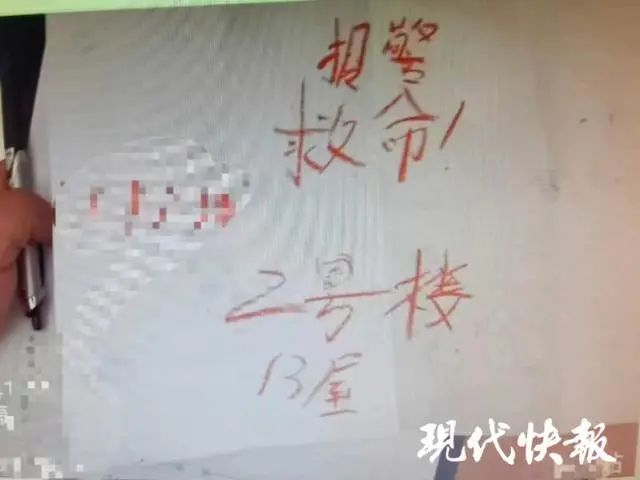 报警
救命!
2号楼
13屋
現代快報